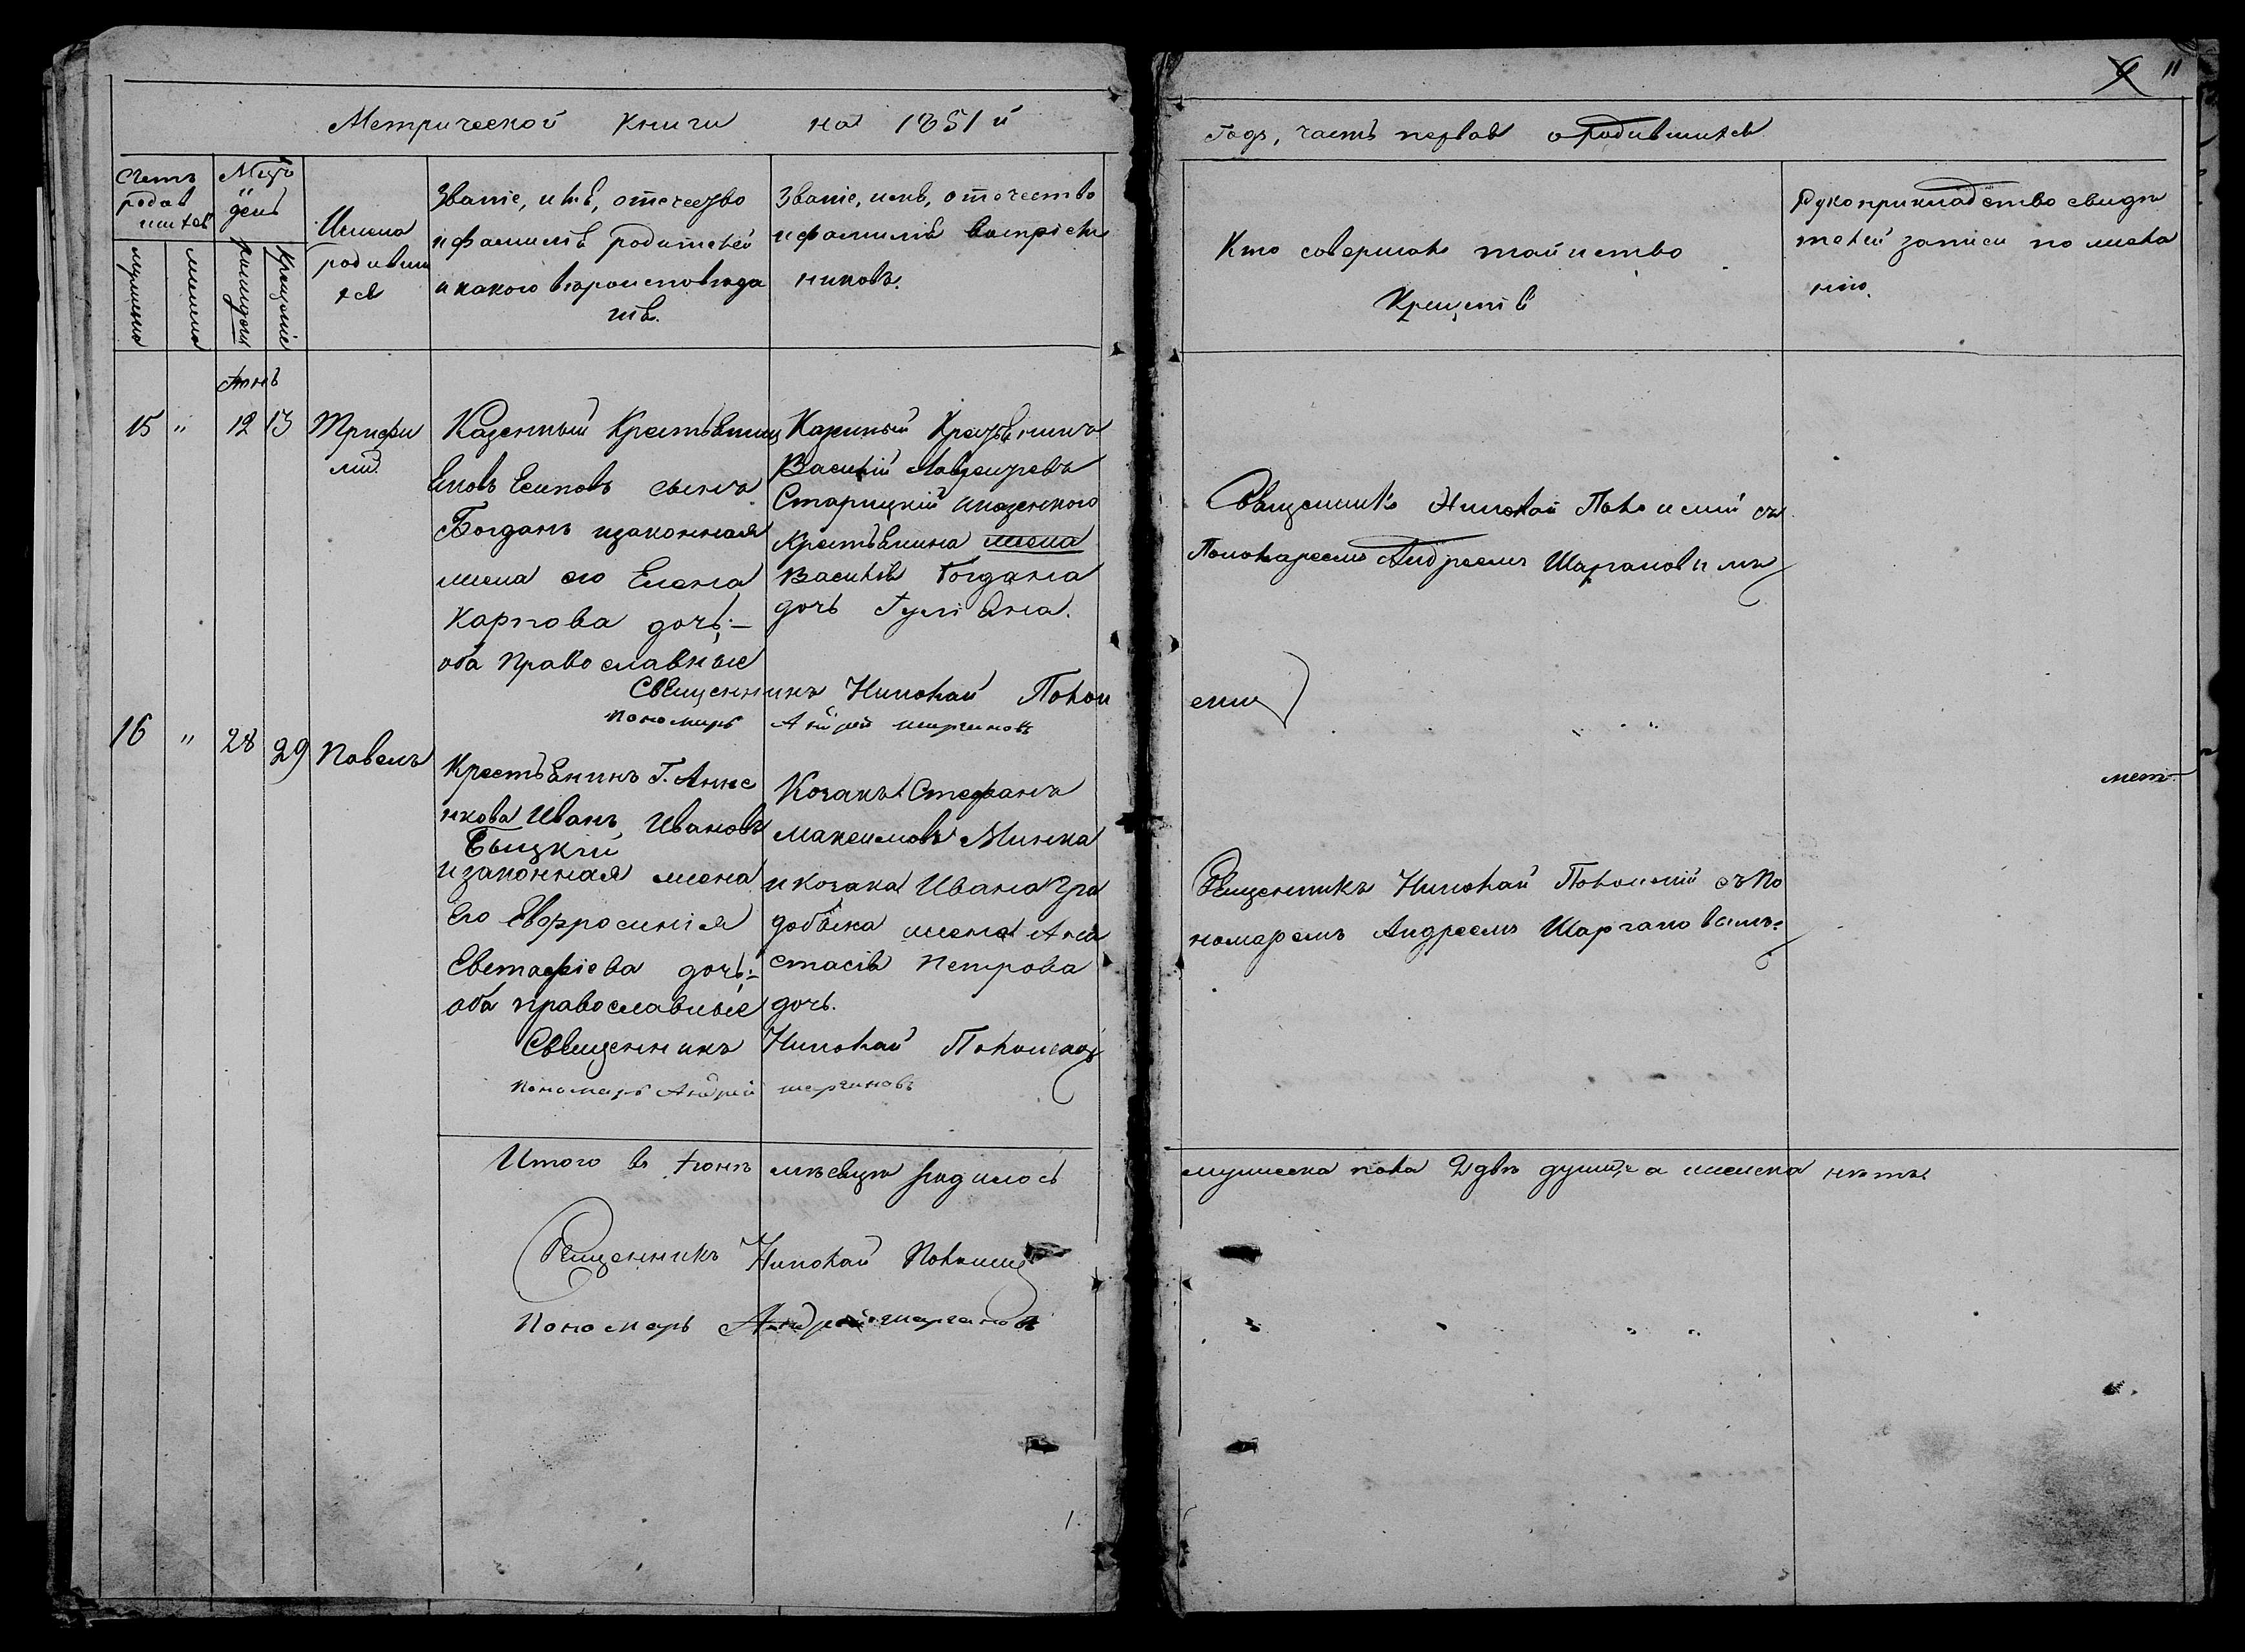 Метрической книги на 1851й
Годъ, часть первая о родившихся
11
Счетъ родившихся
Мѣсяцъ и день
мужеска
женска
рожденія
Крещеніе
Имена
родивших
ся
Званіе, имя, отечество
и фамилія родителей
и какого вѣроисповѣда
нія.
Званіе, имя, отечество
и фамилія воспріем
никовъ.
Кто совершалъ таинство
Крещенія
Рукоприкладство свидѣ
телей записи по жела
нію.
Іюнь
15 " 12 13
Трифи
лій
Казенный Крестьянинъ
Яковъ Есиповъ сынъ
Богданъ и законная
жена его Елена
Карпова дочь;—
оба православные
Казеный Крестьянинъ
Василій
Старицкій и казенного
Крестьянина жена
Василія Богдана
дочь Іуліана.
Священникъ Николай съ
Пономаремъ Андреемъ Шаргановымъ
Священникъ Николай
Пономарь Андрей Шаргановъ
16 " 28 29 Павелъ
Крестьянинъ Г. Анне
нкова Иванъ Ивановъ
Быцкій
и законная жена
его Евфросинія
Евстафіева дочь;—
оба православные
Козакъ Стефанъ
Максимовъ Минка
и козака Ивана
жена Ана
стасія Петрова
дочь.
Священникъ Николай съ По
номаремъ Андреемъ Шаргановымъ.
Священникъ Николай
Пономарь Андрей Шаргановъ
Итого въ Іюнѣ мѣсяцѣ родилось
мужеска пола 2 двѣ души, а женска нѣтъ
Священникъ Николай
Пономарь Андрей Шаргановъ